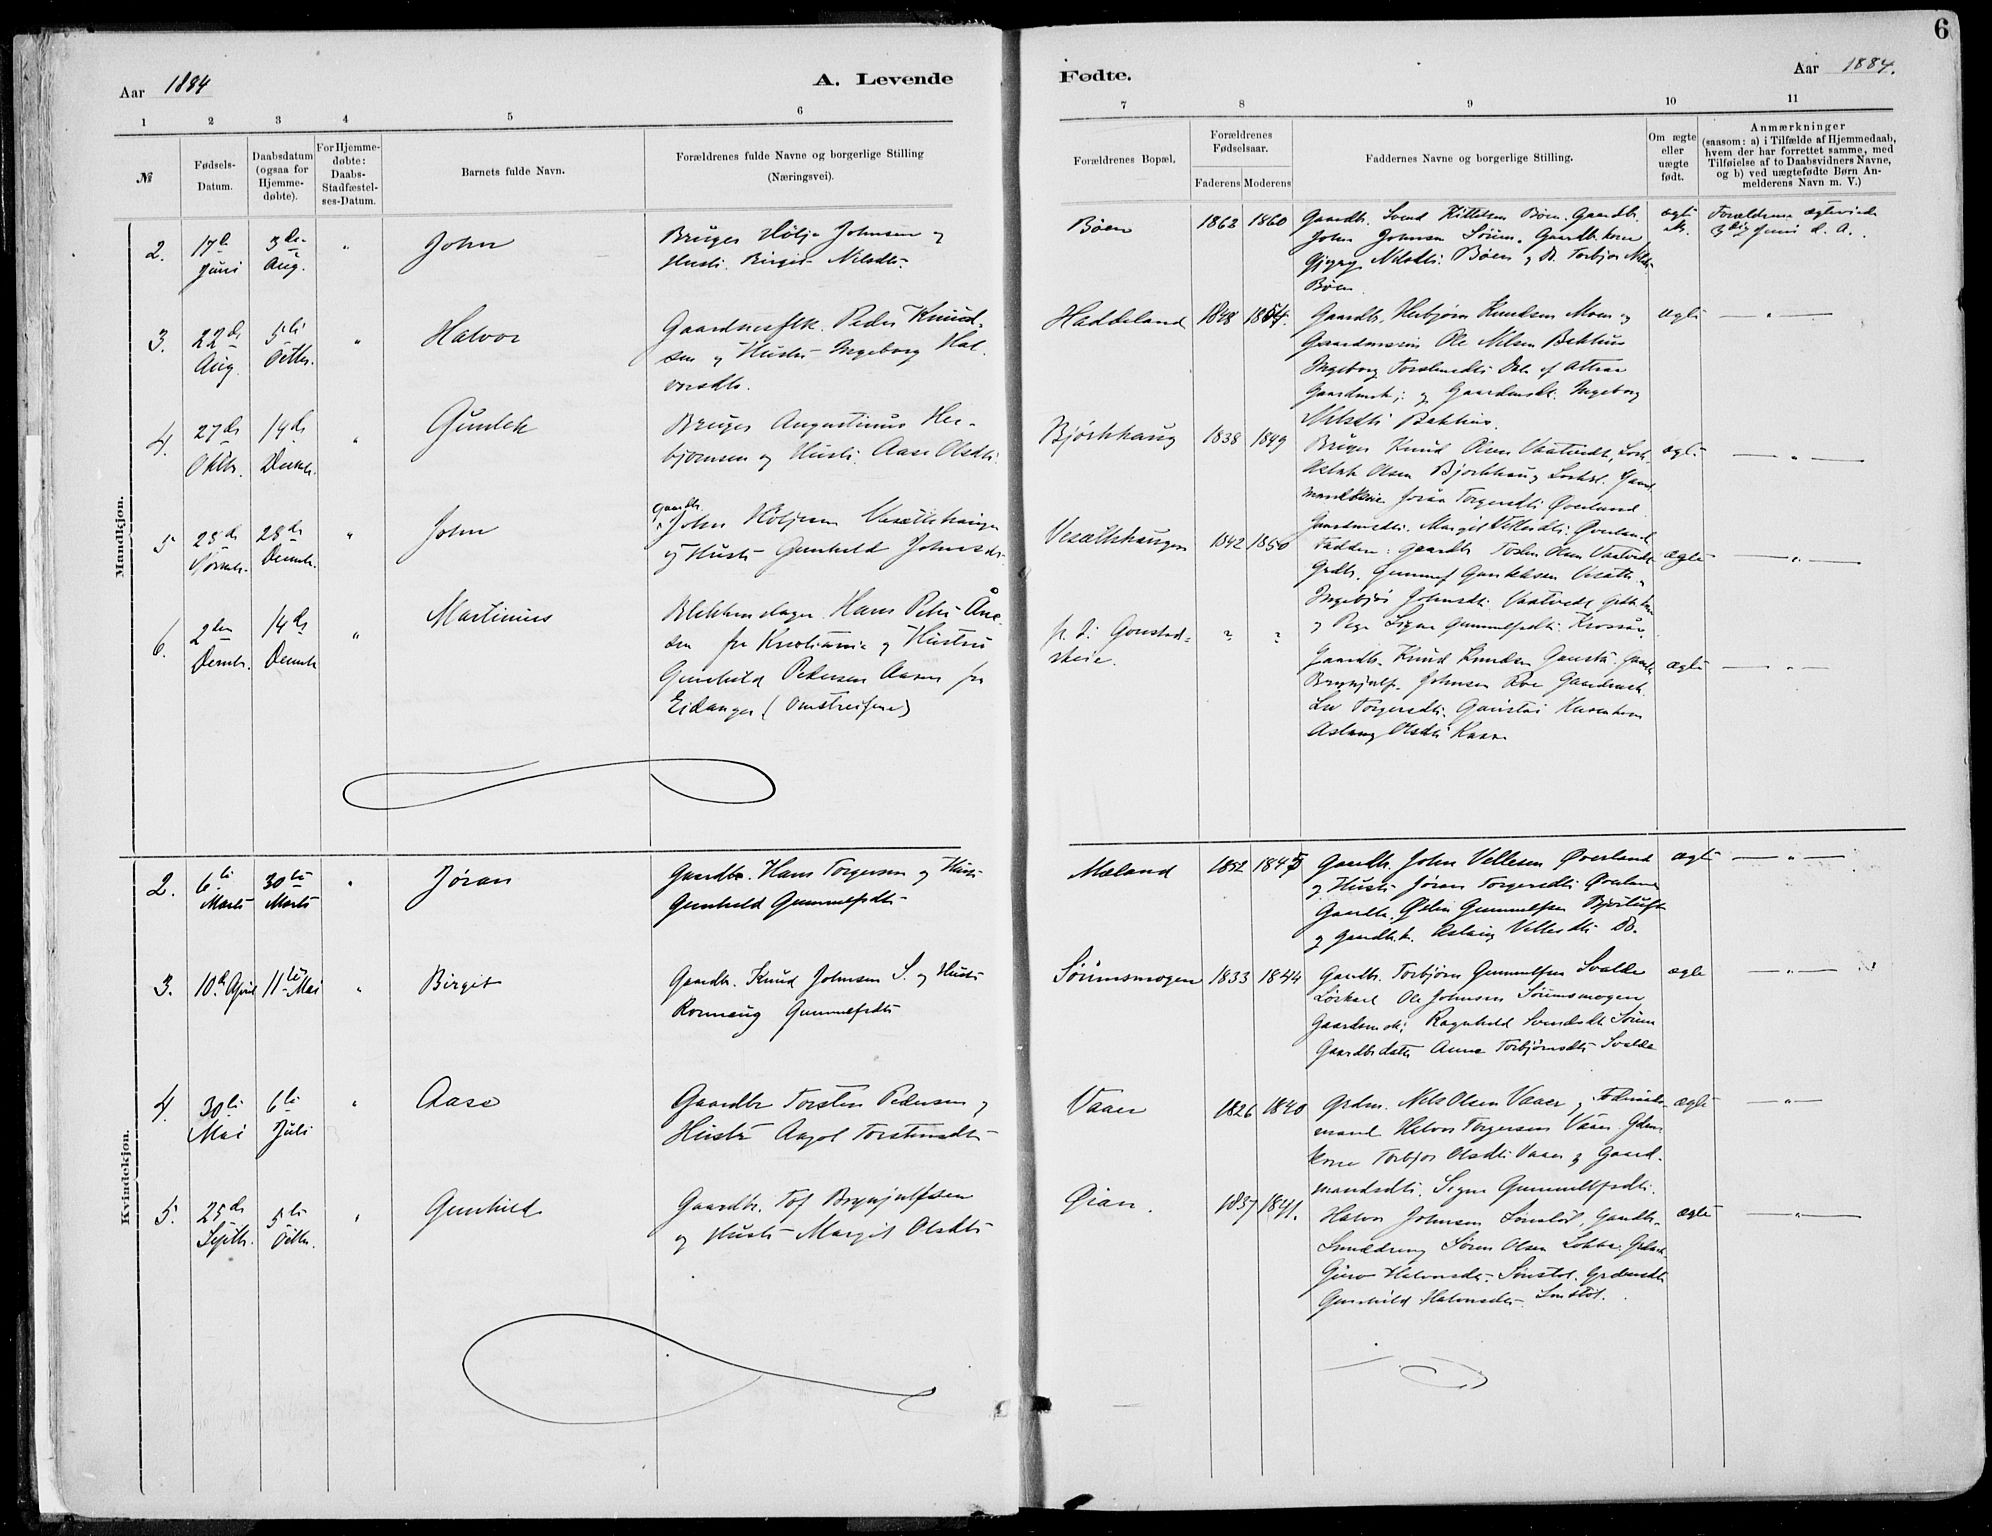 6
Aar 1884
A. Levende
Fødte.
Aar 1884.
1 2 3 4 5 6
7 8 9 10 11
№
Fødsels-
Datum.
Daabsdatum
(ogsaa for
Hjemme-
døbte).
For Hjemme-
døbte:
Daabs-
Stadfæstel-
ses-Datum.
Barnets fulde Navn.
Forældrenes fulde Navne og borgerlige Stilling
(Næringsvei).
Forældrenes Bopæl.
Forældrenes
Fødselsaar.
Faderens Moderens
Faddernes Navne og borgerlige Stilling.
Om ægte
eller
uægte
født.
Anmærkninger
(saasom: a) i Tilfælde af Hjemmedaab,
hvem der har forrettet samme, med
Tilføielse af to Daabsvidners Navne,
og b) ved uægtefødte Børn An-
melderens Navn m. V.)
Mandkjøn.
2. 17de Juni 3die Aug. " John
Bruger Høljе Johnsen og
Hustr. Birgit Nilsdtr.
Bøen 1862 1860
Gaardbr. Svend Kittelsen Bøen. Gaardbr.
John Johnsen Sørum. Gaardbr.kone
Nilsdtr. Bøen og D. Torbjør Nilsdtr
Bøen.
ægte
Forældrene ægteviede
3die Juni d. A.
3. 22de Aug. 5te Octbr. " Halvor
Gaardmfk. Peder Knud-
sen og Hustr. Ingeborg Hal-
vorsdtr.
Haddeland 1848 1854.
Gaardbr. Herbjørn Knudsen Moen og
Gaardmand Ole Nilsen Bakhus
Ingeborg
Gaardmsk; og Gaardmdtr. Ingeborg
Nilsdtr Bakhus.
ægte — " —
4. 27de Oktbr. 14de Decmbr. " Gunlek
Bruger Augustinus Her-
bjørnsen og Hustr. Aase Olsdtr.
Bjørkhaug 1838 1849
Bruger Knud Olsen Vaatvedt,
Aslak Olsen Bjørkhaug
Joran Torgersdtr. Øverland
Gaardmsdtr. Margit Vetlesdtr. Øverland
ægte — " —
5 28de 28de Decmbr. " John
Gaardbr.
John Høljesen Vesætthaugen
og Hustr. Gunhild Johnsdtr.
Vesætthaugen 1842 1850
Faddere: Gaardbr. Olsen Vaatvedt
Grdbr. Gunnulf
Ingebjør Johnsdtr. Vaatvedt
og Pige Signe Gunnulfsdtr.
ægte — " —
6. 2den Decmbr. 14de Decmbr " Martinius
Blikkenslager Hans Peter
sen fra Kristiania og Hustru
Gunhild Pedersen Aasen fra
Eidanger (Omstreifere)
p. t. Goustad-
skeie. ? ?
Gaardbr. Knud Knudsen Gausta. Gaardbr
Brynjulf Johnsen Roe Gaardmsk.
Liv Torgersdtr. Gausta
Aslaug Olsdtr Kaasa
ægte — " —
Kvindekjøn.
2. 6te Marts 30te Marts " Jøran
Gaardbr. Hans Torgersen og Hustr
Gunhild Gunnulfsdtr.
Mæland 1852 1845
Gaardbr John Vetlesen Øverland
og Hustr. Jøran Torgersdtr Øverland
Gaardbr. Østen Gunnulfsen Bjørtuft
og Gaardbr.k. Aslaug Vetlesdtr Do.
ægte — " —
3. 10de April 11te Mai " Birget
Gaardbr. Knud Johnsen S. og Hustr
Ronnaug Gunnulfsdtr
Sørumsmogen 1833 1844
Gaardbr. Torbjørn Gunnulfsen Svalde
Løskarl Ole Johnsen Sørumsmogen
Gaardmsk; Ragnhild Svendsdtr Sørum
Gaardbrdatter Anne Torbjørnsdtr Svalde
ægte — " —
4. 30te Mai 6te Juli " Aase
Gaardbr Torsten Pedersen og
Hustr Aagot Torstensdtr
Vaaer 1826 1840
Grdm. Nils Olsen Vaaer og Føderaads-
mand Halvor Torgersen Vaaer. Gdm.
kone Torbjør Olsdtr Vaaer og Gaard-
mandsdtr. Signe Gunnulfsdtr.
ægte — " —
5. 25de Septbr. 5te Octbr. " Gunhild
Gaardbr. Tof Brynjulfsen
og Hustr Margit Olsdtr
Øian. 1837 1841.
Halvor Johnsen Sønstøl, Gaardbr.
Søren Olsen
Halvorsdtr. Sønstøl.
Gunhild Halvorsdtr. Sønstøl.
ægte — " —